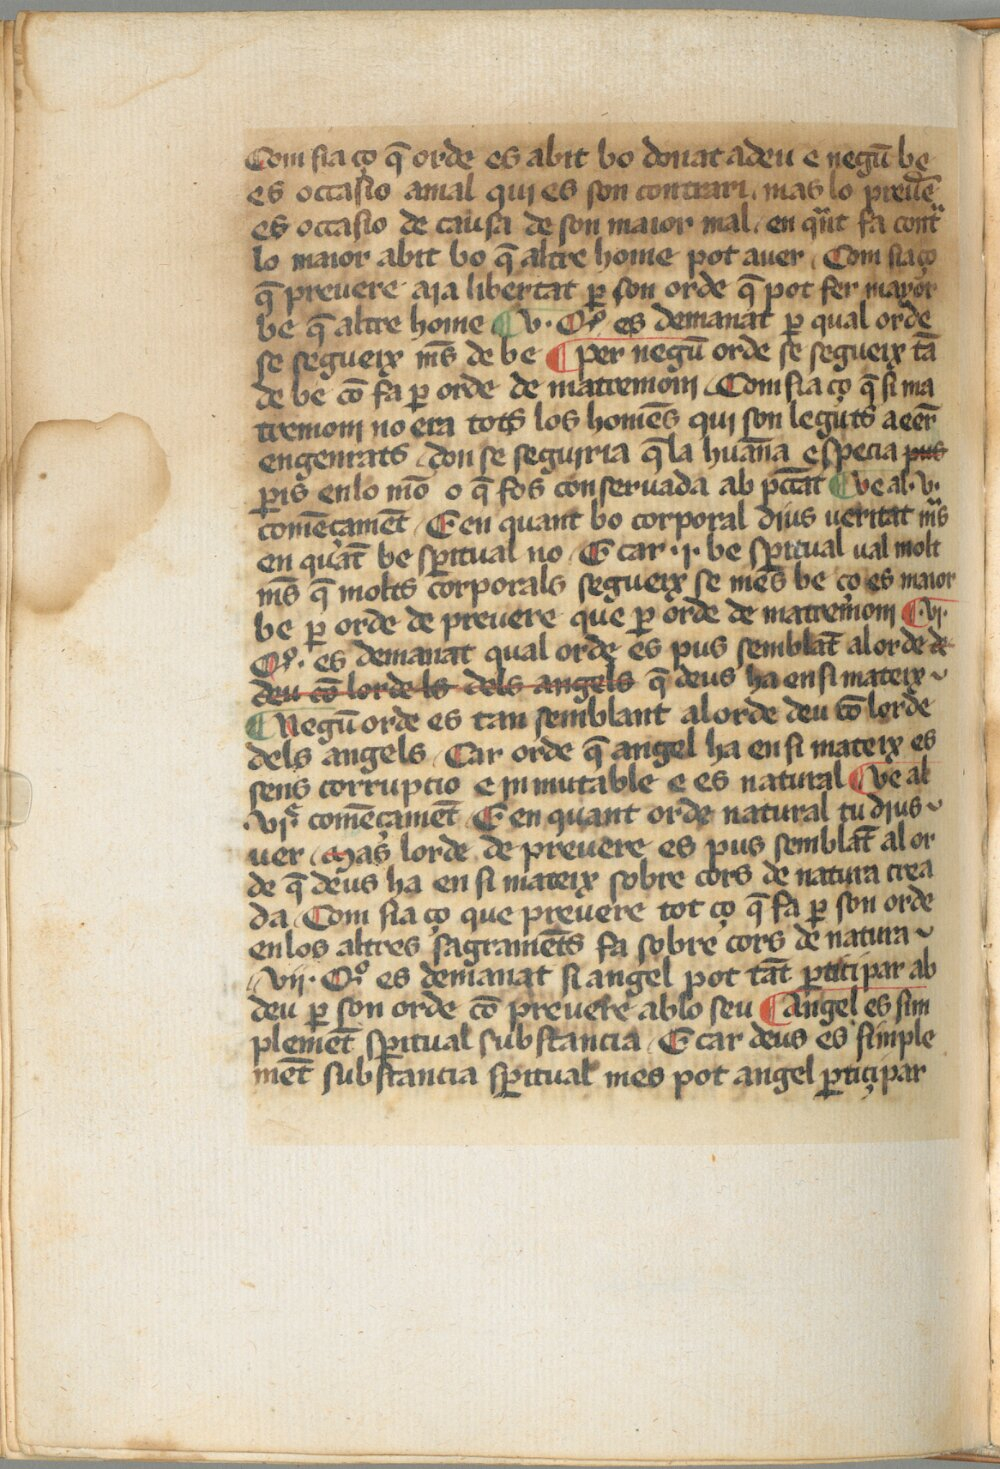 Com sia ço q̄ orde es abit bo donat adeu e negū be
es occasio amal qui es son contrari mas lo preuē
es occasio de causa de son maior mal en qūt fa cont̄
lo maior abit bo q̄ altre home pot auer Com sia ço
q̄ preuere aja libertat ꝑ son orde q̄ pot fer mayor
be q̄ altre home ¶ v· Qº es demanat ꝑ qual orde
se segueix mēs de be ¶ per negū orde se segueix tā
de be cō fa ꝑ orde de matremoni Com sia ço q̄ si ma
tremoni no era tots los homēs qui son leguts a eēr
engenrats don se seguiria q̄ la huāna especia pus
ꝑis en lo mō o q̄ fos conseruada ab pc̄cat ¶ Ve al ·v·
comēçamēt E en quant bo corporal dius ueritat mēs
en quāt be sꝑitual no E car ·i· be sꝑitual ual molt
mēs q̄ molts corporals segueix se mēs be ço es maior
be ꝑ orde de preuere que ꝑ orde de matremoni ¶ ·vi·
Qº· es demanat qual orde es pus semblāt al orde de
deu cō lorde ls dels angels q̄ deus ha en si mateix
¶ Negū orde es tan semblant al orde deu cō lorde
dels angels Car orde q̄ angel ha en si mateix es
sens corrupcio e inmutable e es natural ¶ Ve al
·vi· comēçamēt E en quant orde natural tu dius
uer Mas lorde de preuere es pus semblāt al or
de q̄ deus ha en si mateix sobre cors de natura crea
da Com sia ço que preuere tot ço q̄ fa ꝑ son orde
en los altres sagramēts fa sobre cors de natura
vij· Qº es demanat si angel pot tāt ꝑticipar ab
deu ꝑ son orde cō preuere ab lo seu ¶ Angel es sim
plemēt sꝑitual substancia E car deus es simple
mēt substancia sꝑitual mes pot angel ꝑticipar